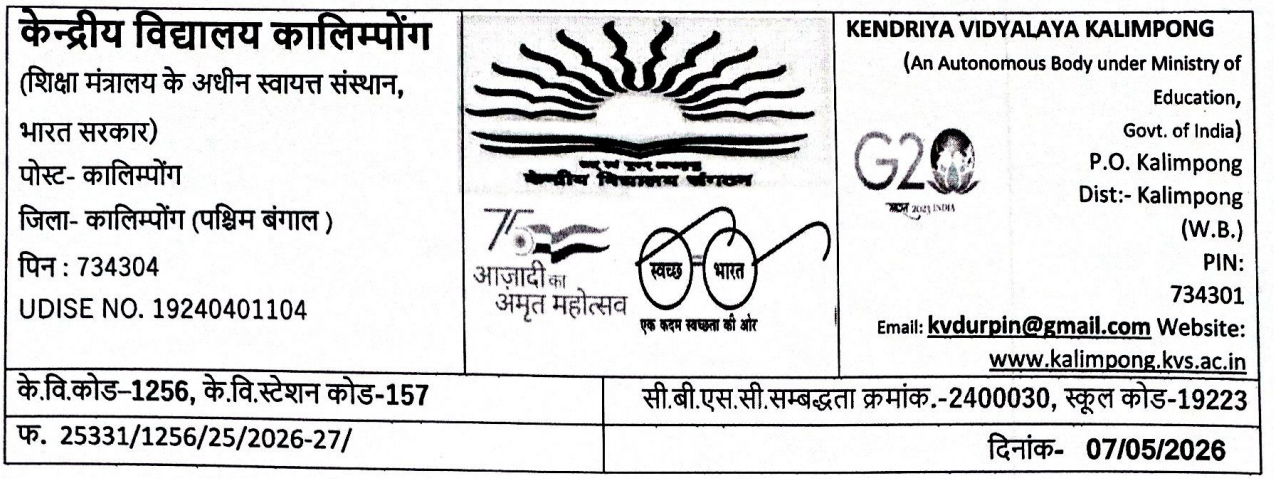 केन्द्रीय विद्यालय कालिम्पोंग
(शिक्षा मंत्रालय के अधीन स्वायत्त संस्थान,
भारत सरकार)
पोस्ट- कालिम्पोंग
जिला- कालिम्पोंग (पश्चिम बंगाल )
पिन : 734304
UDISE NO. 19240401104
केन्द्रीय विद्यालय संगठन
75
आज़ादी का
अमृत महोत्सव
स्वच्छ भारत
एक कदम स्वच्छता की ओर
KENDRIYA VIDYALAYA KALIMPONG
(An Autonomous Body under Ministry of
Education,
Govt. of India)
P.O. Kalimpong
Dist:- Kalimpong
(W.B.)
PIN:
734301
G20
2023 INDIA
Email: kvdurpin@gmail.com Website:
www.kalimpong.kvs.ac.in
के.वि.कोड–1256, के.वि.स्टेशन कोड-157
सी.बी.एस.सी.सम्बद्धता क्रमांक.-2400030, स्कूल कोड-19223
फ. 25331/1256/25/2026-27/
दिनांक- 07/05/2026